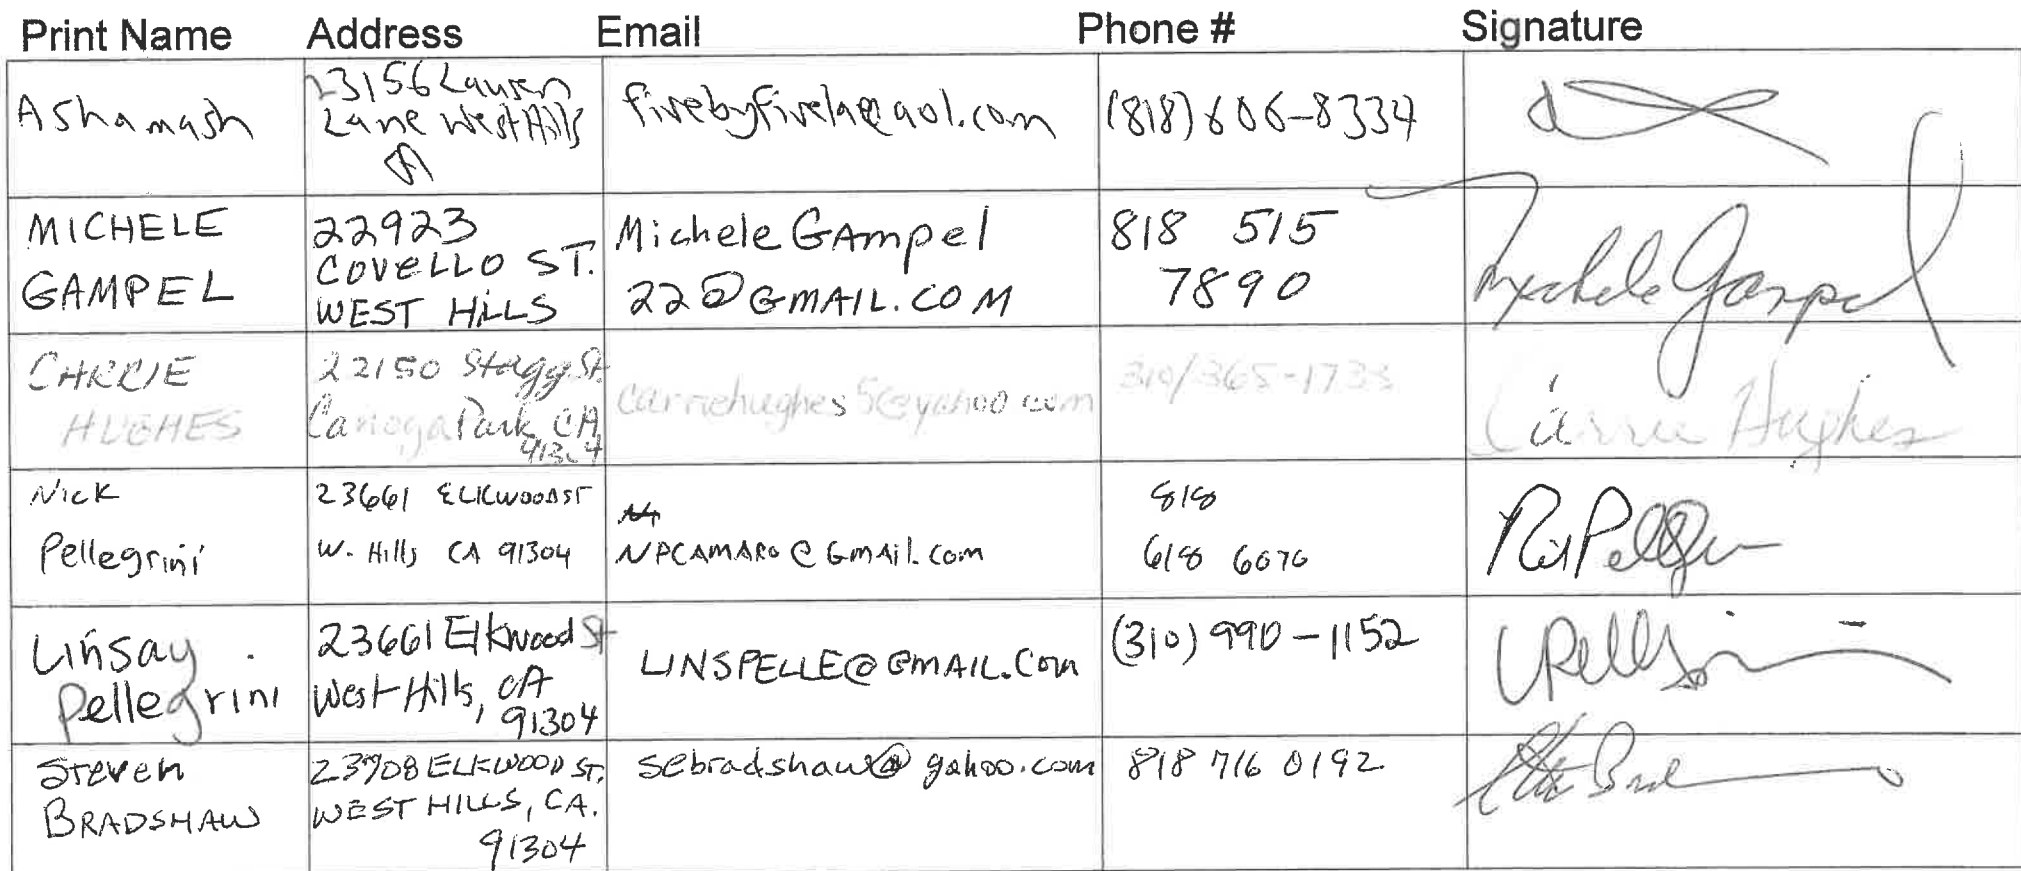 Print Name Address Email Phone # Signature
Ashamash
23156 Lauren
Lane West Hills
CA
fivebyfivela@aol.com
(818) 606-8334
MICHELE
GAMPEL
22923
COVELLO ST.
WEST HILLS
Michele GAmpel
22@GMAIL.COM
818 515
7890
Michele Gampel
CARRIE
HUGHES
22150 Stagg St.
Canoga Park CA
91304
carriehughes5@yahoo.com
310/365-1733
Carrie Hughes
Nick
Pellegrini
23661 ELKWOOD ST
W. Hills CA 91304
NPCAMARO@GMAil.com
818
618 6070
Linsay
Pellegrini
23661 Elkwood St
West Hills, CA
91304
LINSPELLE@GMAIL.Com
(310) 990-1152
Steven
BRADSHAW
23708 ELKWOOD ST.
WEST HILLS, CA.
91304
sebradshaw@yahoo.com
818 716 0192